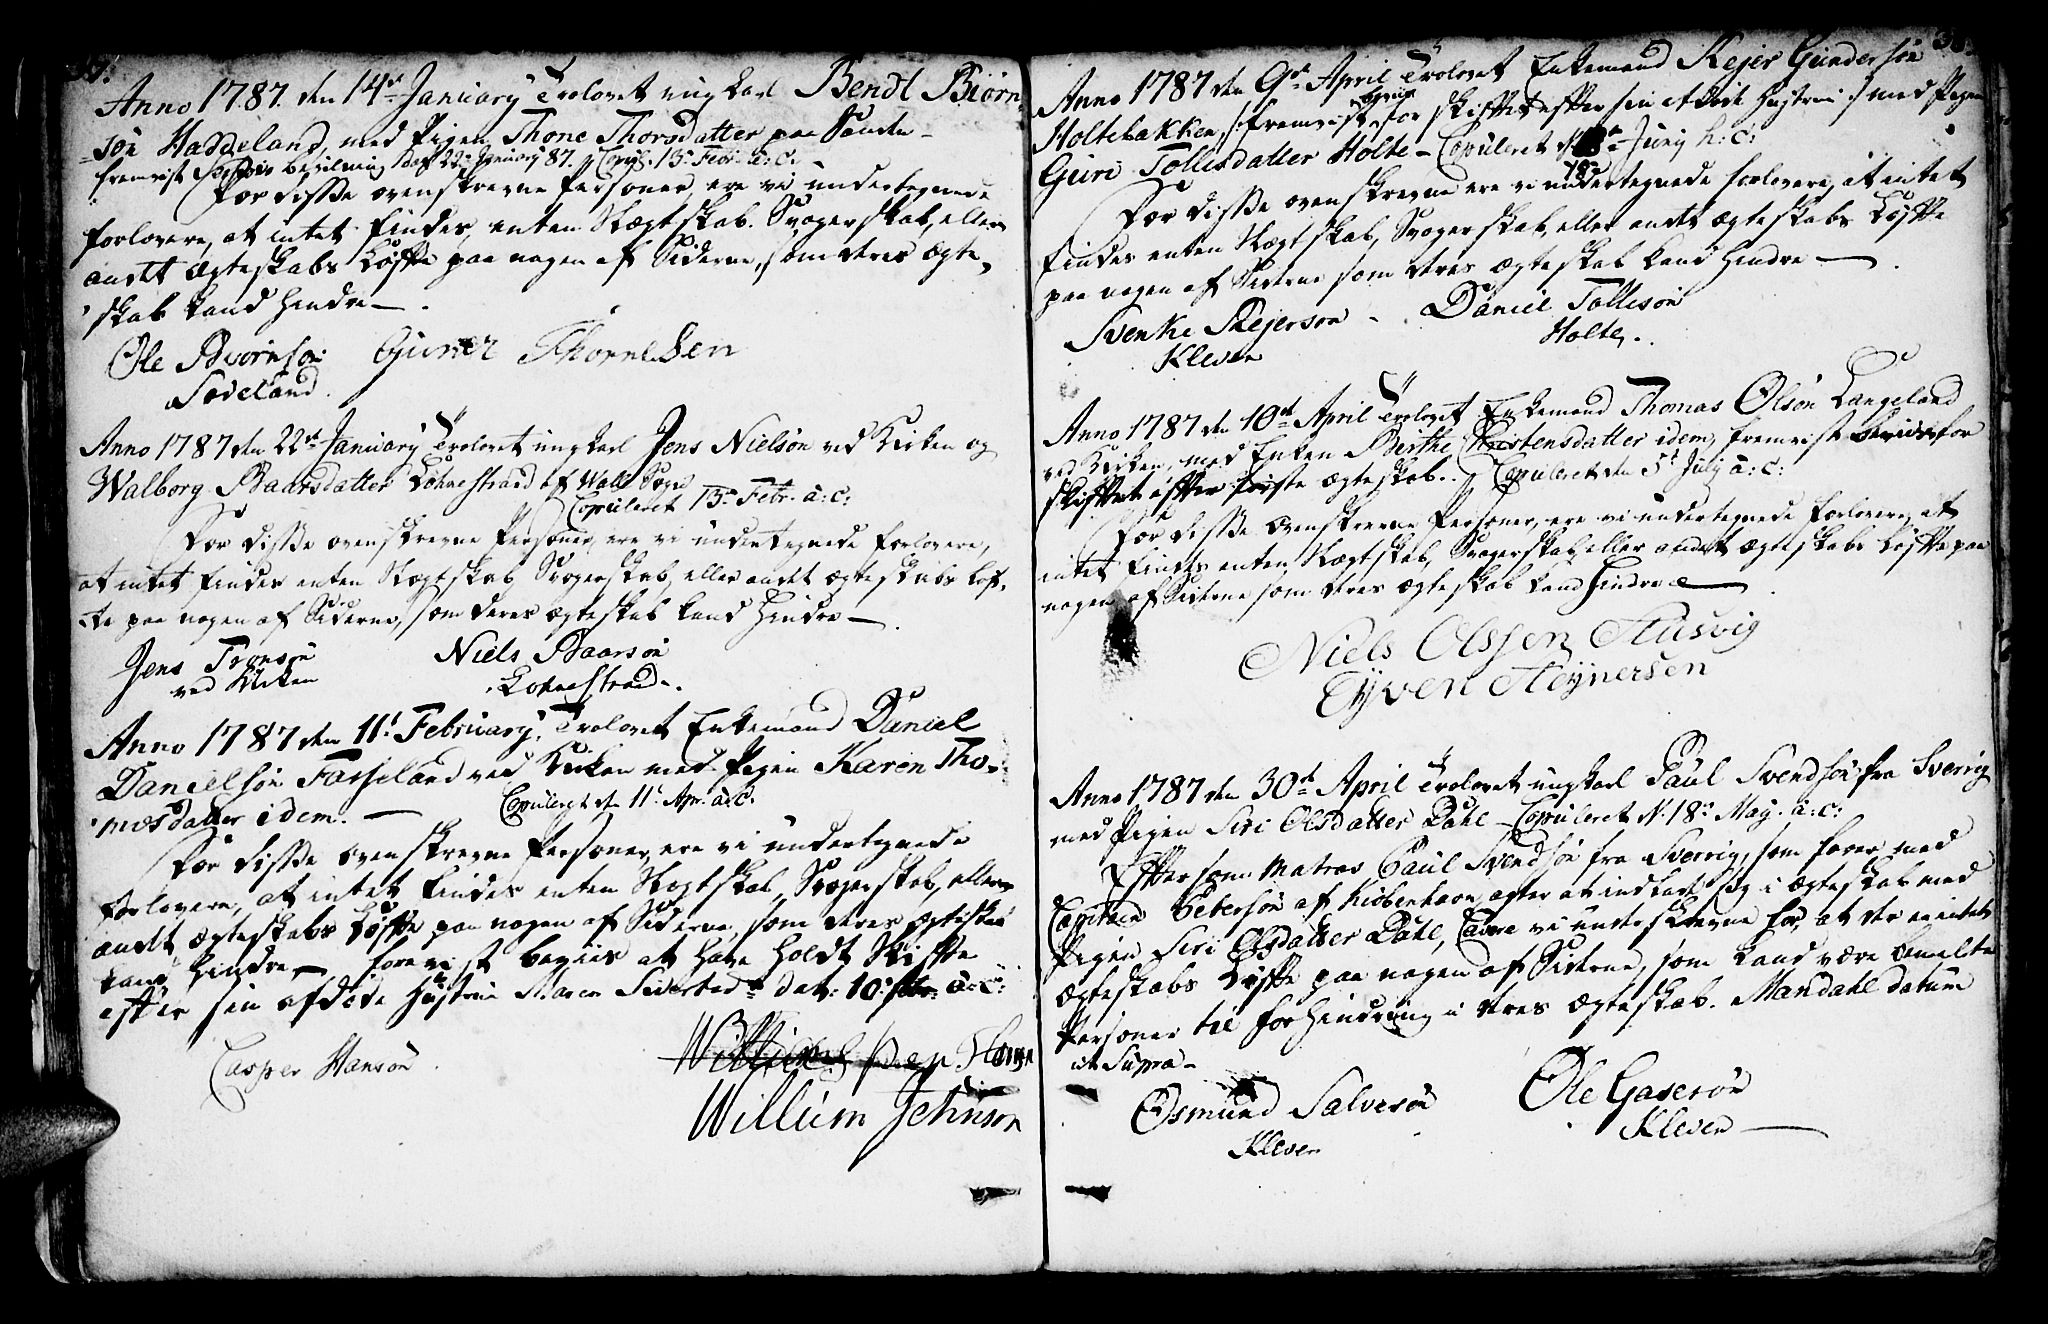 Anno 1787. den 14de January Trolovet ungkarl Bendt Biørn-
søn Haddeland, med Pigen Thone Thorsdatter paa
fremvist bevilning dat 22de January 87. Copul: 15de Febr: a: c:
For disse ovenskrevne Personer, ere vi undertegnede
forlovere, at intet findes, enten Slægtskab, Svogerskab, eller
andet Ægteskabs Løfte paa nogen af Siderne, som deres Ægte-
skab kand hindre
Ole Biørnsøn Guner
Søveland
Anno 1787 den 22de January Trolovet ungkarl Jens Nielsøn ved Kirken og
Walborg Baarsdatter Lohnestrand af Walle Sogn
Copuleret 15de Febr. a: c:
For disse ovenskrevne Personer, ere vi undertegnede forlovere,
at intet findes enten Slægtskab, Svogerskab, eller andet ægteskabs Løf-
te paa nogen af Siderne, som deres ægteskab kand hindre
Jens Tronsøn Niels Baarsøn
ved Kirken Lohnestrand
Anno 1787 den 11te February, Trolovet Enkemand Daniel
Danielsøn Fasseland ved Kirken med Pigen Karen Tho-
masdatter idem. Copuleret den 11te Apr. a: c:
For disse ovenskrevne Personer, ere vi undertegnede
forlovere, at intet findes enten Slægtskab, Svogerskab, eller
andet Ægteskabs Løfte paa nogen af Siderne, som deres ægteskab
kand hindre forevist beviis at have holdt Skifte
efter sin afdøde Hustrue Maren Sivertsd: dat: 10de a: c:
Casper Hansøn
Willum Johnson
Anno 1787 den 9de April Trolovet Enkemand Rejer Gundersøn
Holtebakken, fremviste beviis for Skifte efter sin afdøde Hustrue med Pigen
Guri Tollisdatter Holte Copuleret d. Juny h: c:
For disse ovenskrevne ere vi undertegnede forlovere, at intet
findes enten Slægtskab, Svogerskab, eller andet ægteskabs Løfte
paa nogen af Siderne som deres ægteskab kand hindre
Svenke Rejerson Daniel Tollisøn
Kleven Holte
Anno 1787 den 10de April Trolovet Enkemand Thomas Olsøn Langeland
ved Kirken, med Enken Berthe Chrestensdatter idem, fremvist beviis for
Skiftet efter første ægteskab. Copuleret den 5te July a: c:
For disse ovenskrevne Personer, ere vi undertegnede forlovere, at
intet findes enten Slægtskab, Svogerskab eller andet ægteskabs Løfte paa
nogen af Siderne som deres ægteskab kand hindre
Niels Olssen Husvig
Eyven Reynersen
Anno 1787 den 30te April Trolovet ungkarl Paul Svendsøn fra Sverrig
med Pigen Siri Olsdatter Dahl Copuleret d. 18de May. a: c:
Eftersom Matros Paul Svendsøn fra Sverrig, som farer med
Capitain Petersøn af Kiøbenhavn agter at indlade sig i ægteskab med
Pigen Siri Olsdatter Dahl, Cavere vi underskrevne for, at der er intet
Ægteskabs Løfte paa nogen af Siderne, som kand være bemelte
Personer til forhindring i deres Ægteskab. Mandahl datum
ut Supra
Osmund Salvesøn Ole Gasesøn
Kleven Kleven